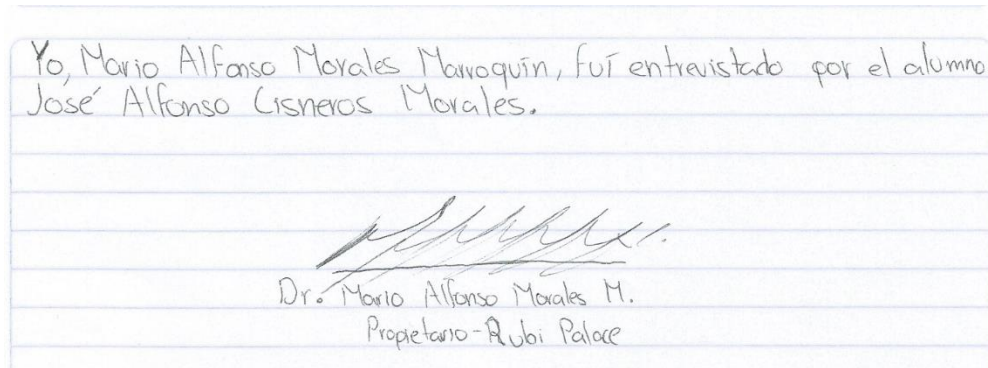 Yo, Mario Alfonso Morales Marroquín, fuí entrevistado por el alumno
José Alfonso Cisneros Morales.
Dr. Mario Alfonso Morales M.
Propietario-Rubi Palace